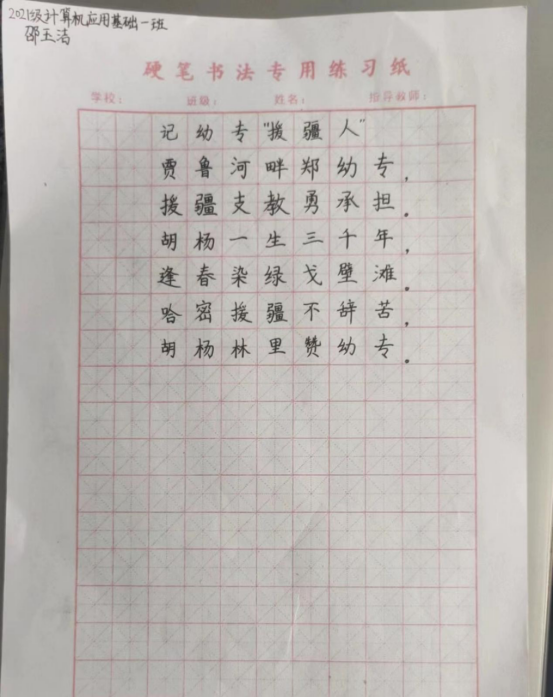 2021级计算机应用基础一班
邵玉洁
硬笔书法专用练习纸
学校： 班级： 姓名： 指导教师：
记幼专"援疆人"
贾鲁河畔郑幼专，
援疆支教勇承担。
胡杨一生三千年，
逢春染绿戈壁滩。
哈密援疆不辞苦，
胡杨林里赞幼专。